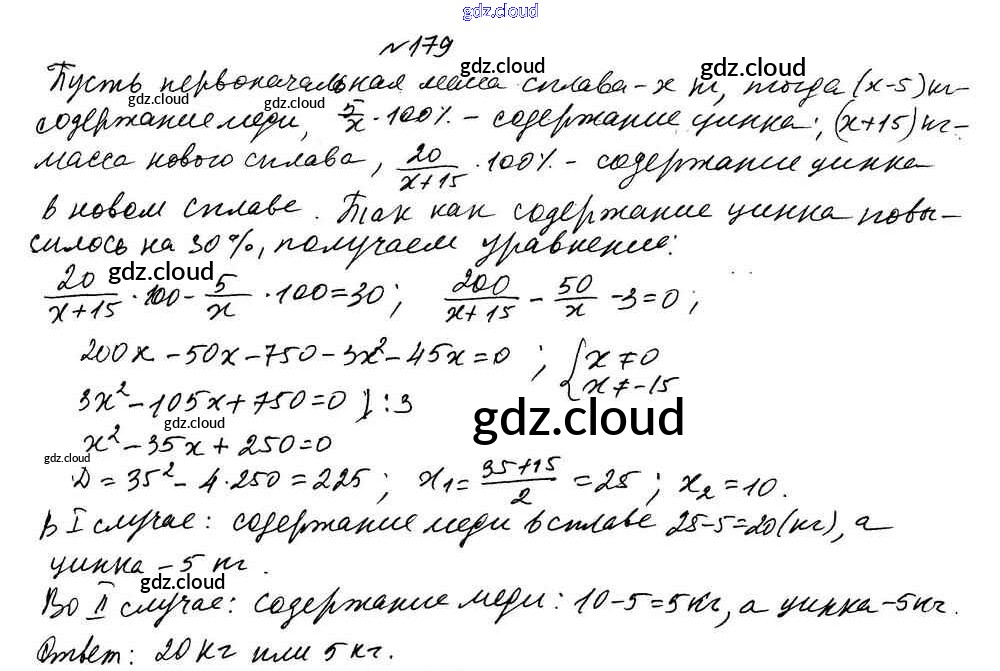 gdz.cloud
№179
gdz.cloud gdz.cloud
Пусть первоначальная масса сплава - x кг, тогда (x-5) кг -
gdz.cloud gdz.cloud
содержание меди, 5/x · 100% - содержание цинка; (x+15) кг -
масса нового сплава, 20/(x+15) · 100% - содержание цинка
в новом сплаве. Так как содержание цинка повы-
силось на 30%, получаем уравнение:
gdz.cloud
20/(x+15) · 100 - 5/x · 100 = 30; 200/(x+15) - 50/x - 3 = 0;
200x - 50x - 750 - 3x² - 45x = 0; { x ≠ 0
x ≠ -15
3x² - 105x + 750 = 0 ) : 3
gdz.cloud
gdz.cloud
x² - 35x + 250 = 0
gdz.cloud
D = 35² - 4·250 = 225; x₁ = (35+15)/2 = 25; x₂ = 10.
В I случае: содержание меди в сплаве 25-5=20(кг), а
цинка - 5 кг.
gdz.cloud
Во II случае: содержание меди: 10-5=5кг, а цинка-5кг.
Ответ: 20 кг или 5 кг.